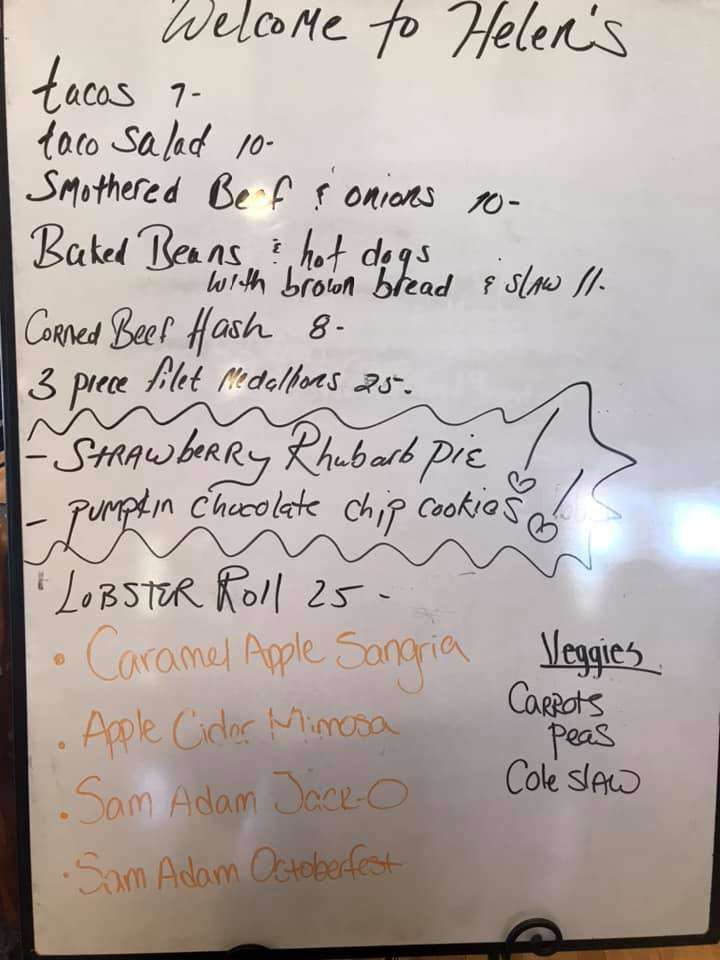 Welcome to Helen's
tacos 7-
taco Salad 10-
Smothered Beef & onions 10-
Baked Beans & hot dogs
with brown bread & slaw 11-
Corned Beef Hash 8-
3 piece filet Medallions 25-
- Strawberry Rhubarb Pie !
- Pumpkin Chocolate chip cookies !
Lobster Roll 25 -
• Caramel Apple Sangria
• Apple Cider Mimosa
• Sam Adam Jack-O
• Sam Adam Octoberfest
Veggies
Carrots
Peas
Cole Slaw